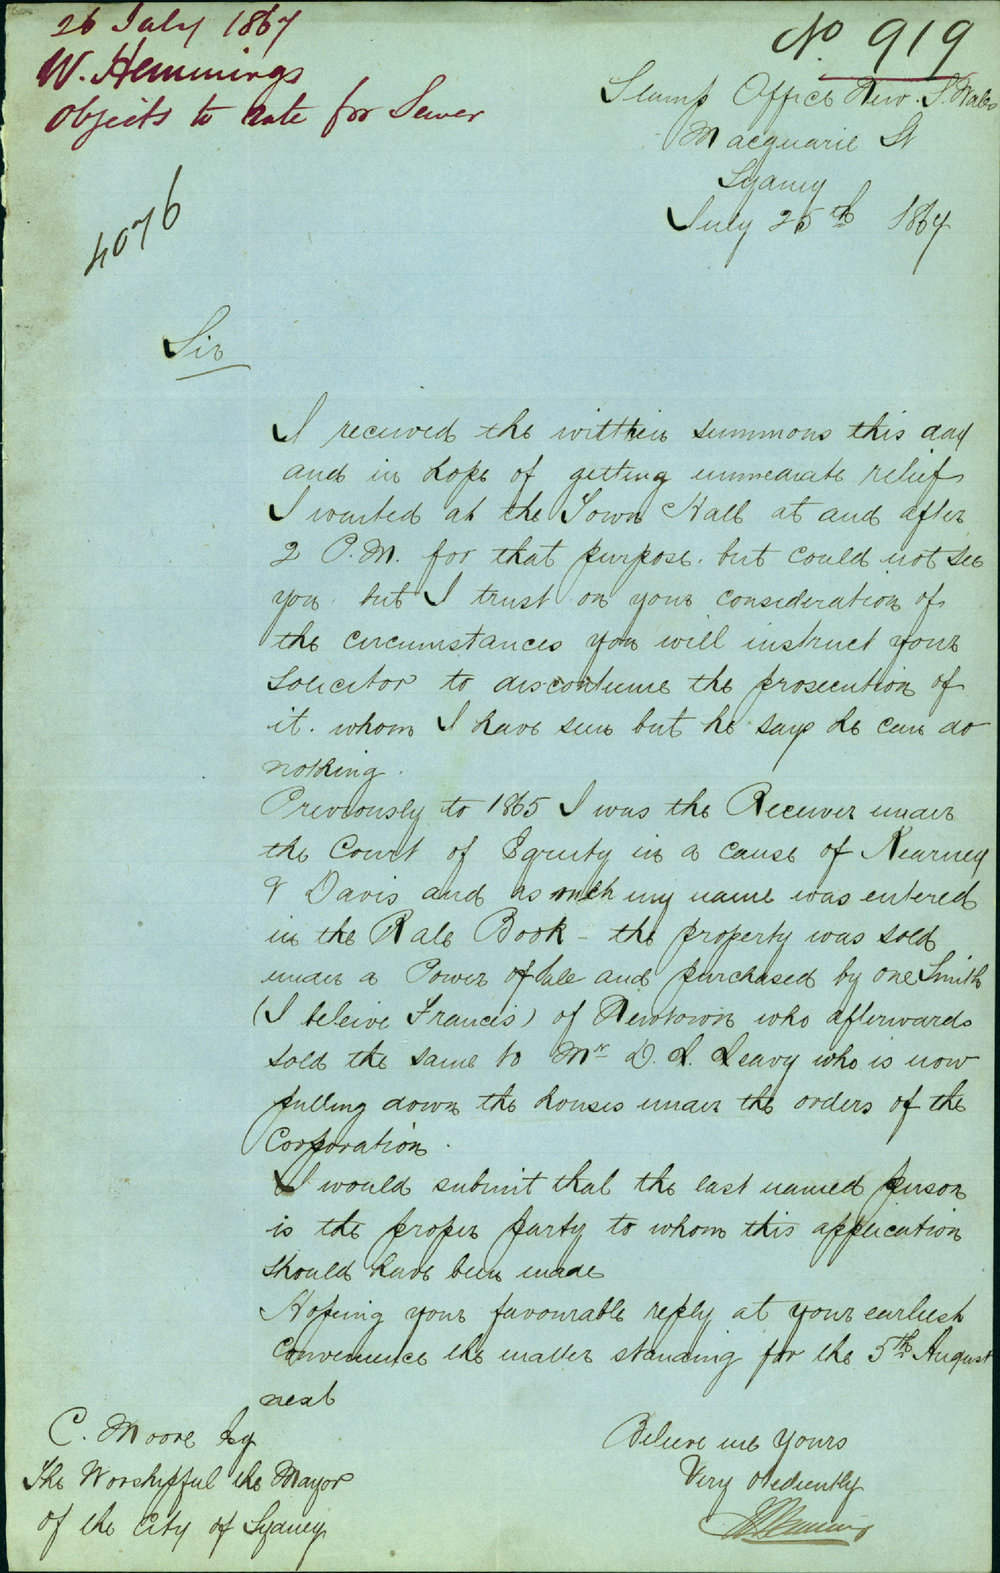 26 July 1867
W. Hemmings
Objects to rate for Sewer
No. 919
4076
Stamp Office New. S. Wales
Macquarie St
Sydney
July 25th 1867
Sir
I received the within summons this day
and in hope of getting immediate relief
I waited at the Town Hall at and after
2 P.M. for that purpose. but could not see
you. but I trust on your consideration of
the circumstances you will instruct your
Solicitor to discontinue the prosecution of
it. whom I have seen but he says he can do
nothing.
Previously to 1865 I was the Receiver under
the Court of Equity in a cause of Kearney
& Davis and as such my name was entered
in the Rate Book - the property was sold
under a Power of Sale and purchased by one Smith
(I beleive Francis) of Newtown who afterwards
sold the same to Mr D. L. Leavy who is now
pulling down the houses under the orders of the
Corporation.
I would submit that the last named person
is the proper party to whom this application
should have been made
Hoping your favourable reply at your earliest
Convenience the matter standing for the 5th August
next
Believe me Yours
Very Obediently
C. Moore Esq
The Worshipful the Mayor
of the City of Sydney